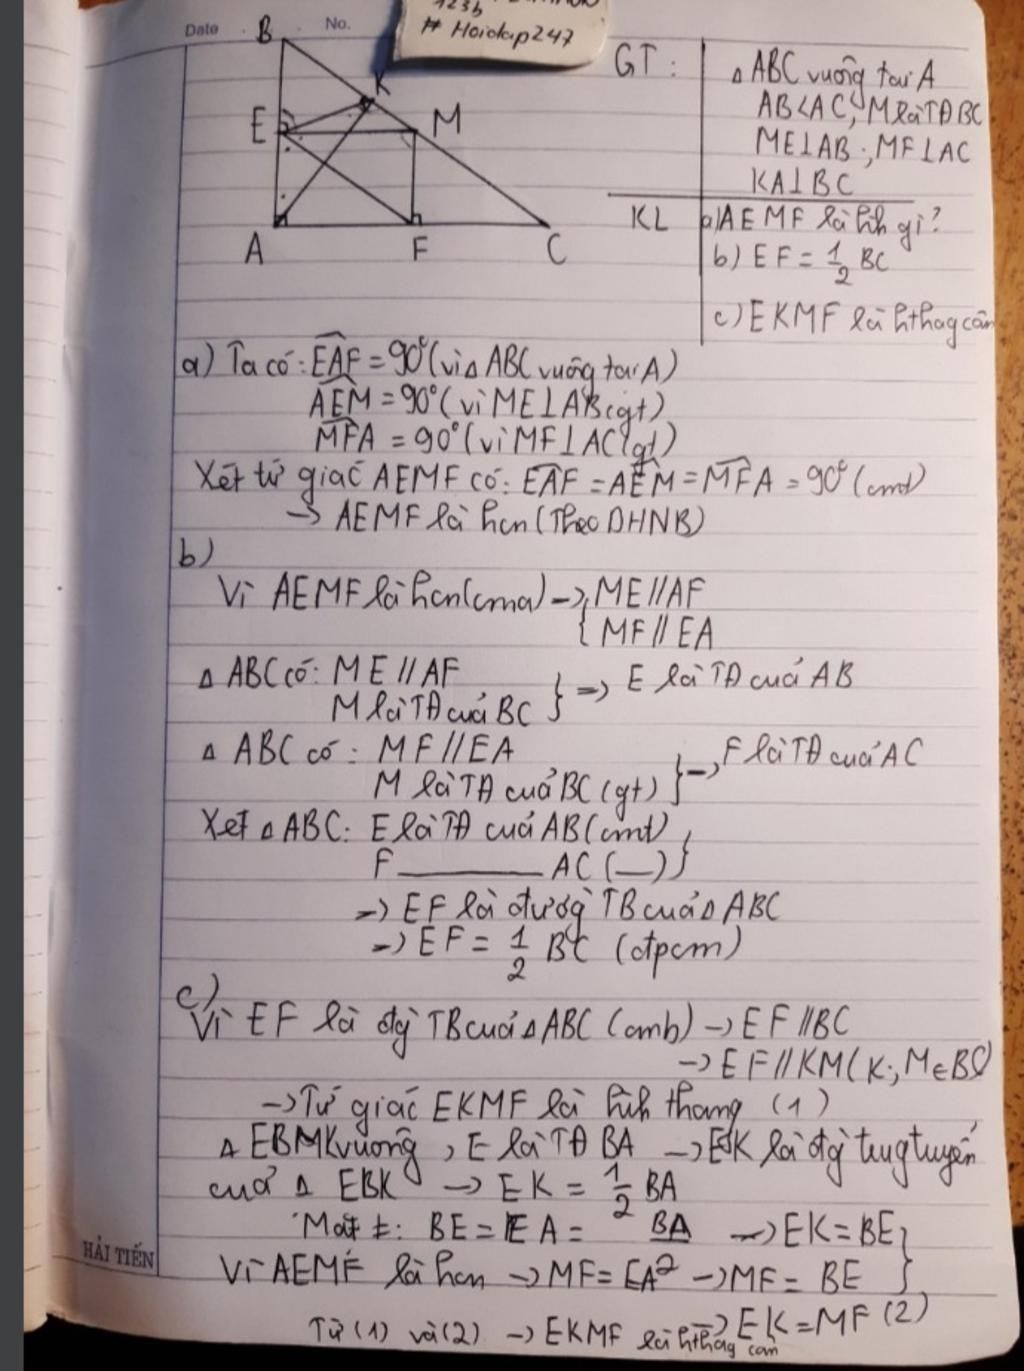 123b
# Hoidap247
Date
No.
B
K
E
M
A
F
C
GT:
Δ ABC vuông tại A
AB<AC, M là TĐ BC
ME⊥AB, MF⊥AC
KA⊥BC
KL
a) AEMF là hình gì?
b) EF = 1/2 BC
c) EKMF là hthag cân
a) Ta có: EAF = 90° (vì Δ ABC vuông tại A)
AEM = 90° (vì ME⊥AB(gt)
MFA = 90° (vì MF⊥AC(gt)
Xét tứ giác AEMF có: EAF = AEM = MFA = 90° (cmt)
→ AEMF là hcn (Theo DHNB)
b)
Vì AEMF là hcn(cma) → { ME//AF
MF//EA
Δ ABC có: ME//AF
M là TĐ của BC } => E là TĐ của AB
Δ ABC có: MF//EA
M là TĐ của BC (gt) } → F là TĐ của AC
Xét Δ ABC: E là TĐ của AB (cmt)
F ——— AC (—) }
→ EF là đường TB của Δ ABC
→ EF = 1/2 BC (đpcm)
c)
Vì EF là đg TB của Δ ABC (cmb) → EF//BC
→ EF//KM (K, M ∈ BC)
→ Tứ giác EKMF là hình thang (1)
vuông, E là TĐ BA → EK là đg trug tuyến
của Δ EBK → EK = 1/2 BA
Mặt ≠: BE = EA = BA/2 → EK = BE }
Vì AEMF là hcn → MF = EA → MF = BE }
→ EK = MF (2)
Từ (1) và (2) → EKMF là hthag cân
HẢI TIẾN